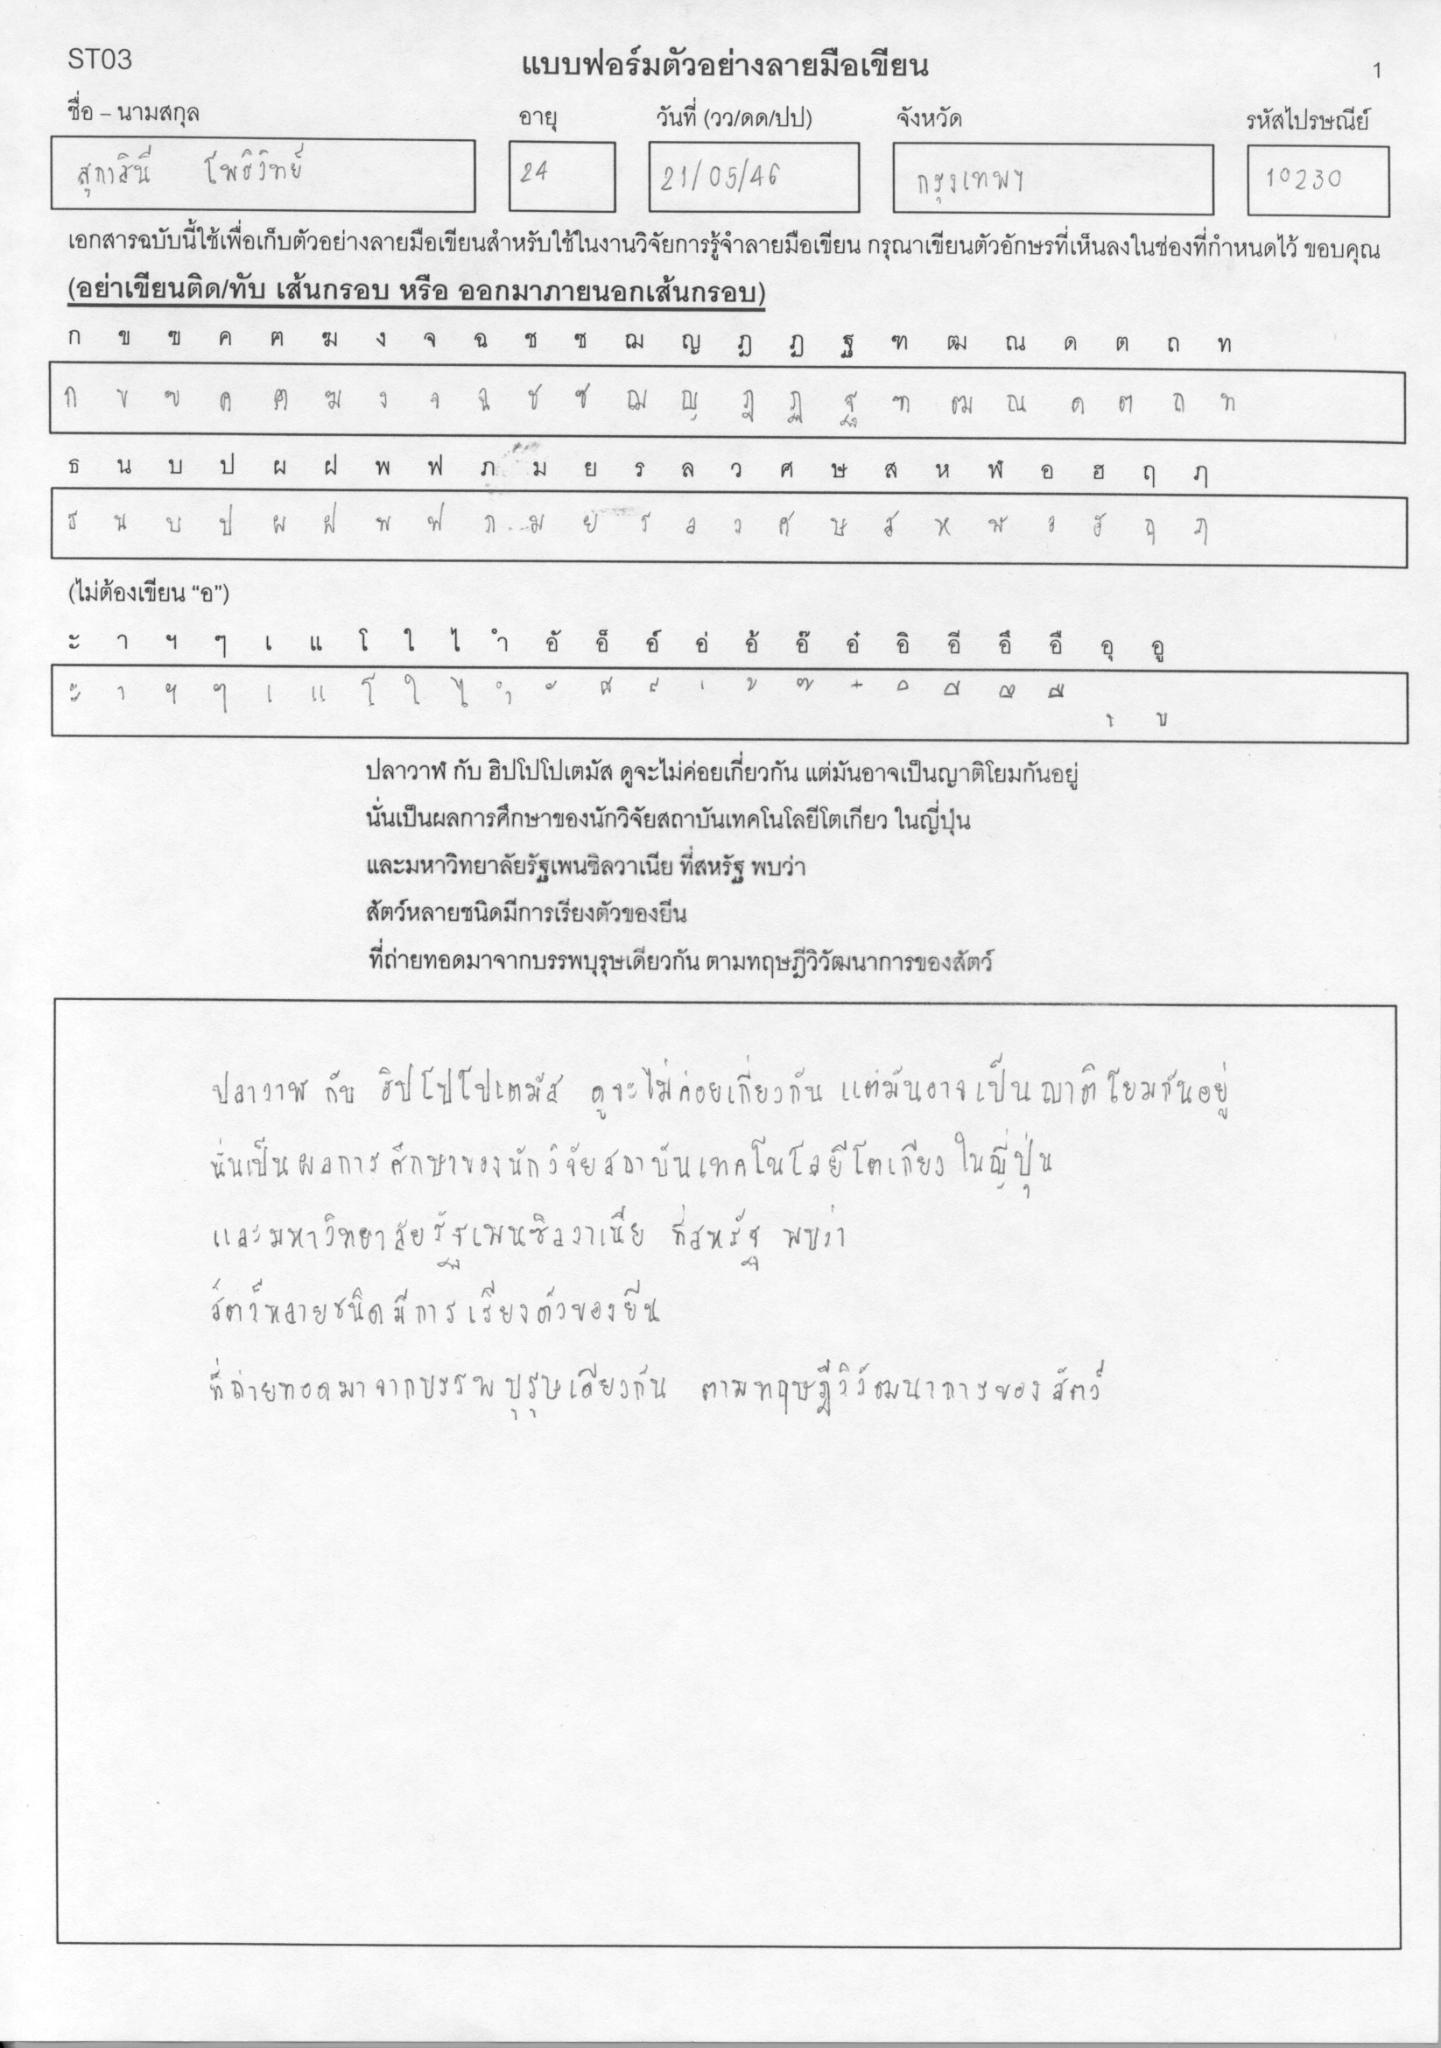 ST03 แบบฟอร์มตัวอย่างลายมือเขียน 1
ชื่อ – นามสกุล อายุ วันที่ (วว/ดด/ปป) จังหวัด รหัสไปรษณีย์
โพธิวิทย์ 24 21/05/46 กรุงเทพฯ 10230
เอกสารฉบับนี้ใช้เพื่อเก็บตัวอย่างลายมือเขียนสำหรับใช้ในงานวิจัยการรู้จำลายมือเขียน กรุณาเขียนตัวอักษรที่เห็นลงในช่องที่กำหนดไว้ ขอบคุณ
(อย่าเขียนติด/ทับ เส้นกรอบ หรือ ออกมาภายนอกเส้นกรอบ)
ก ข ฃ ค ฅ ฆ ง จ ฉ ช ซ ฌ ญ ฎ ฏ ฐ ฑ ฒ ณ ด ต ถ ท
ก ข ฃ ค ฅ ฆ ง จ ฉ ช ซ ฌ ญ ฎ ฏ ฐ ฑ ฒ ณ ด ต ถ ท
ธ น บ ป ผ ฝ พ ฟ ภ ม ย ร ล ว ศ ษ ส ห ฬ อ ฮ ฤ ฦ
ธ น บ ป ผ ฝ พ ฟ ภ ม ย ร ล ว ศ ษ ส ห ฬ อ ฮ ฤ ฦ
(ไม่ต้องเขียน “อ”)
ะ า ฯ ๆ เ แ โ ใ ไ ำ อั อ็ อ์ อ่ อ้ อ๊ อ๋ อิ อี อึ อื อุ อู
ะ า ฯ ๆ เ แ โ ใ ไ ำ ั ็ ์ ่ ้ ๊ ๋ ิ ี ึ ื ุ ู
ปลาวาฬ กับ ฮิปโปโปเตมัส ดูจะไม่ค่อยเกี่ยวกัน แต่มันอาจเป็นญาติโยมกันอยู่
นั่นเป็นผลการศึกษาของนักวิจัยสถาบันเทคโนโลยีโตเกียว ในญี่ปุ่น
และมหาวิทยาลัยรัฐเพนซิลวาเนีย ที่สหรัฐ พบว่า
สัตว์หลายชนิดมีการเรียงตัวของยีน
ที่ถ่ายทอดมาจากบรรพบุรุษเดียวกัน ตามทฤษฎีวิวัฒนาการของสัตว์
ปลาวาฬ กับ ฮิปโปโปเตมัส ดูจะไม่ค่อยเกี่ยวกัน แต่มันอาจเป็นญาติโยมกันอยู่
นั่นเป็นผลการศึกษาของนักวิจัยสถาบันเทคโนโลยีโตเกียว ในญี่ปุ่น
และมหาวิทยาลัยรัฐเพนซิลวาเนีย ที่สหรัฐ พบว่า
สัตว์หลายชนิดมีการเรียงตัวของยีน
ที่ถ่ายทอดมาจากบรรพบุรุษเดียวกัน ตามทฤษฎีวิวัฒนาการของสัตว์